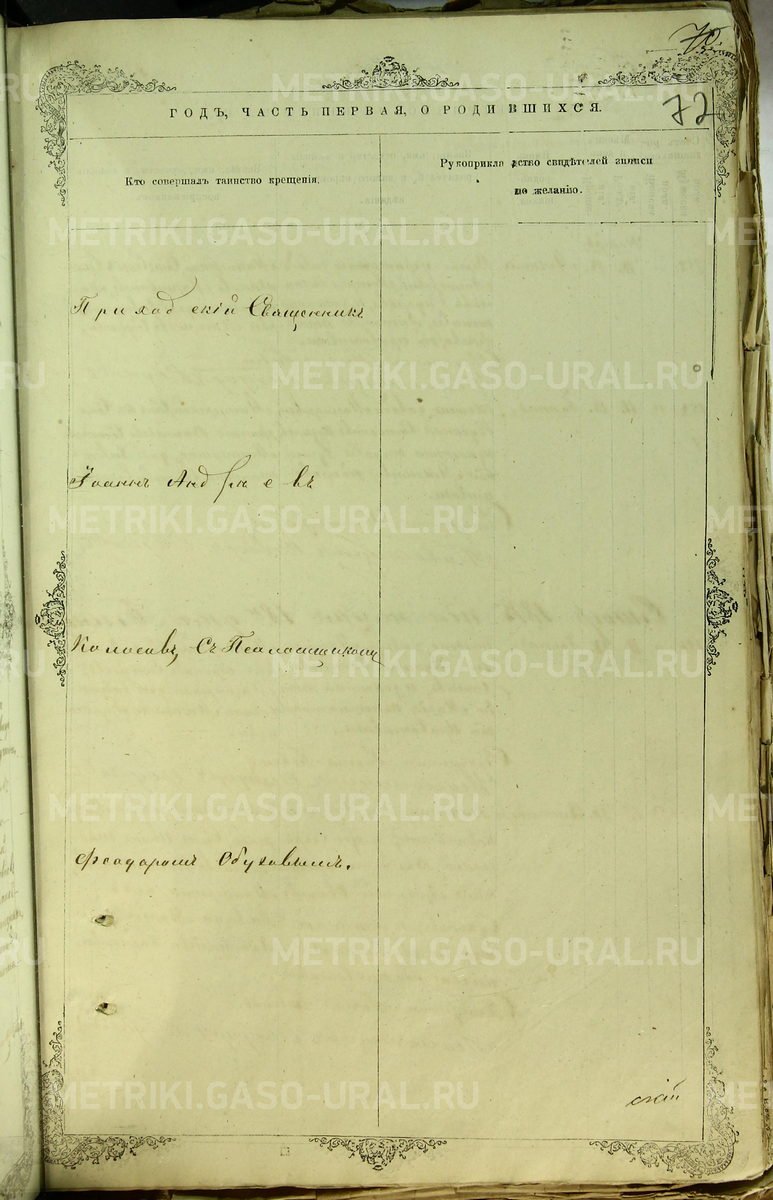 70.
72
ГОДЪ, ЧАСТЬ ПЕРВАЯ, О РОДИВШИХСЯ.
Кто совершалъ таинство крещенія.
Рукоприкладство свидѣтелей записи
по желанію.
Приходскій Священникъ
Іоаннъ Андреевъ
Колосовъ, съ Псаломщикомъ
Феодоромъ Обуховымъ.
скій
METRIKI.GASO-URAL.RU